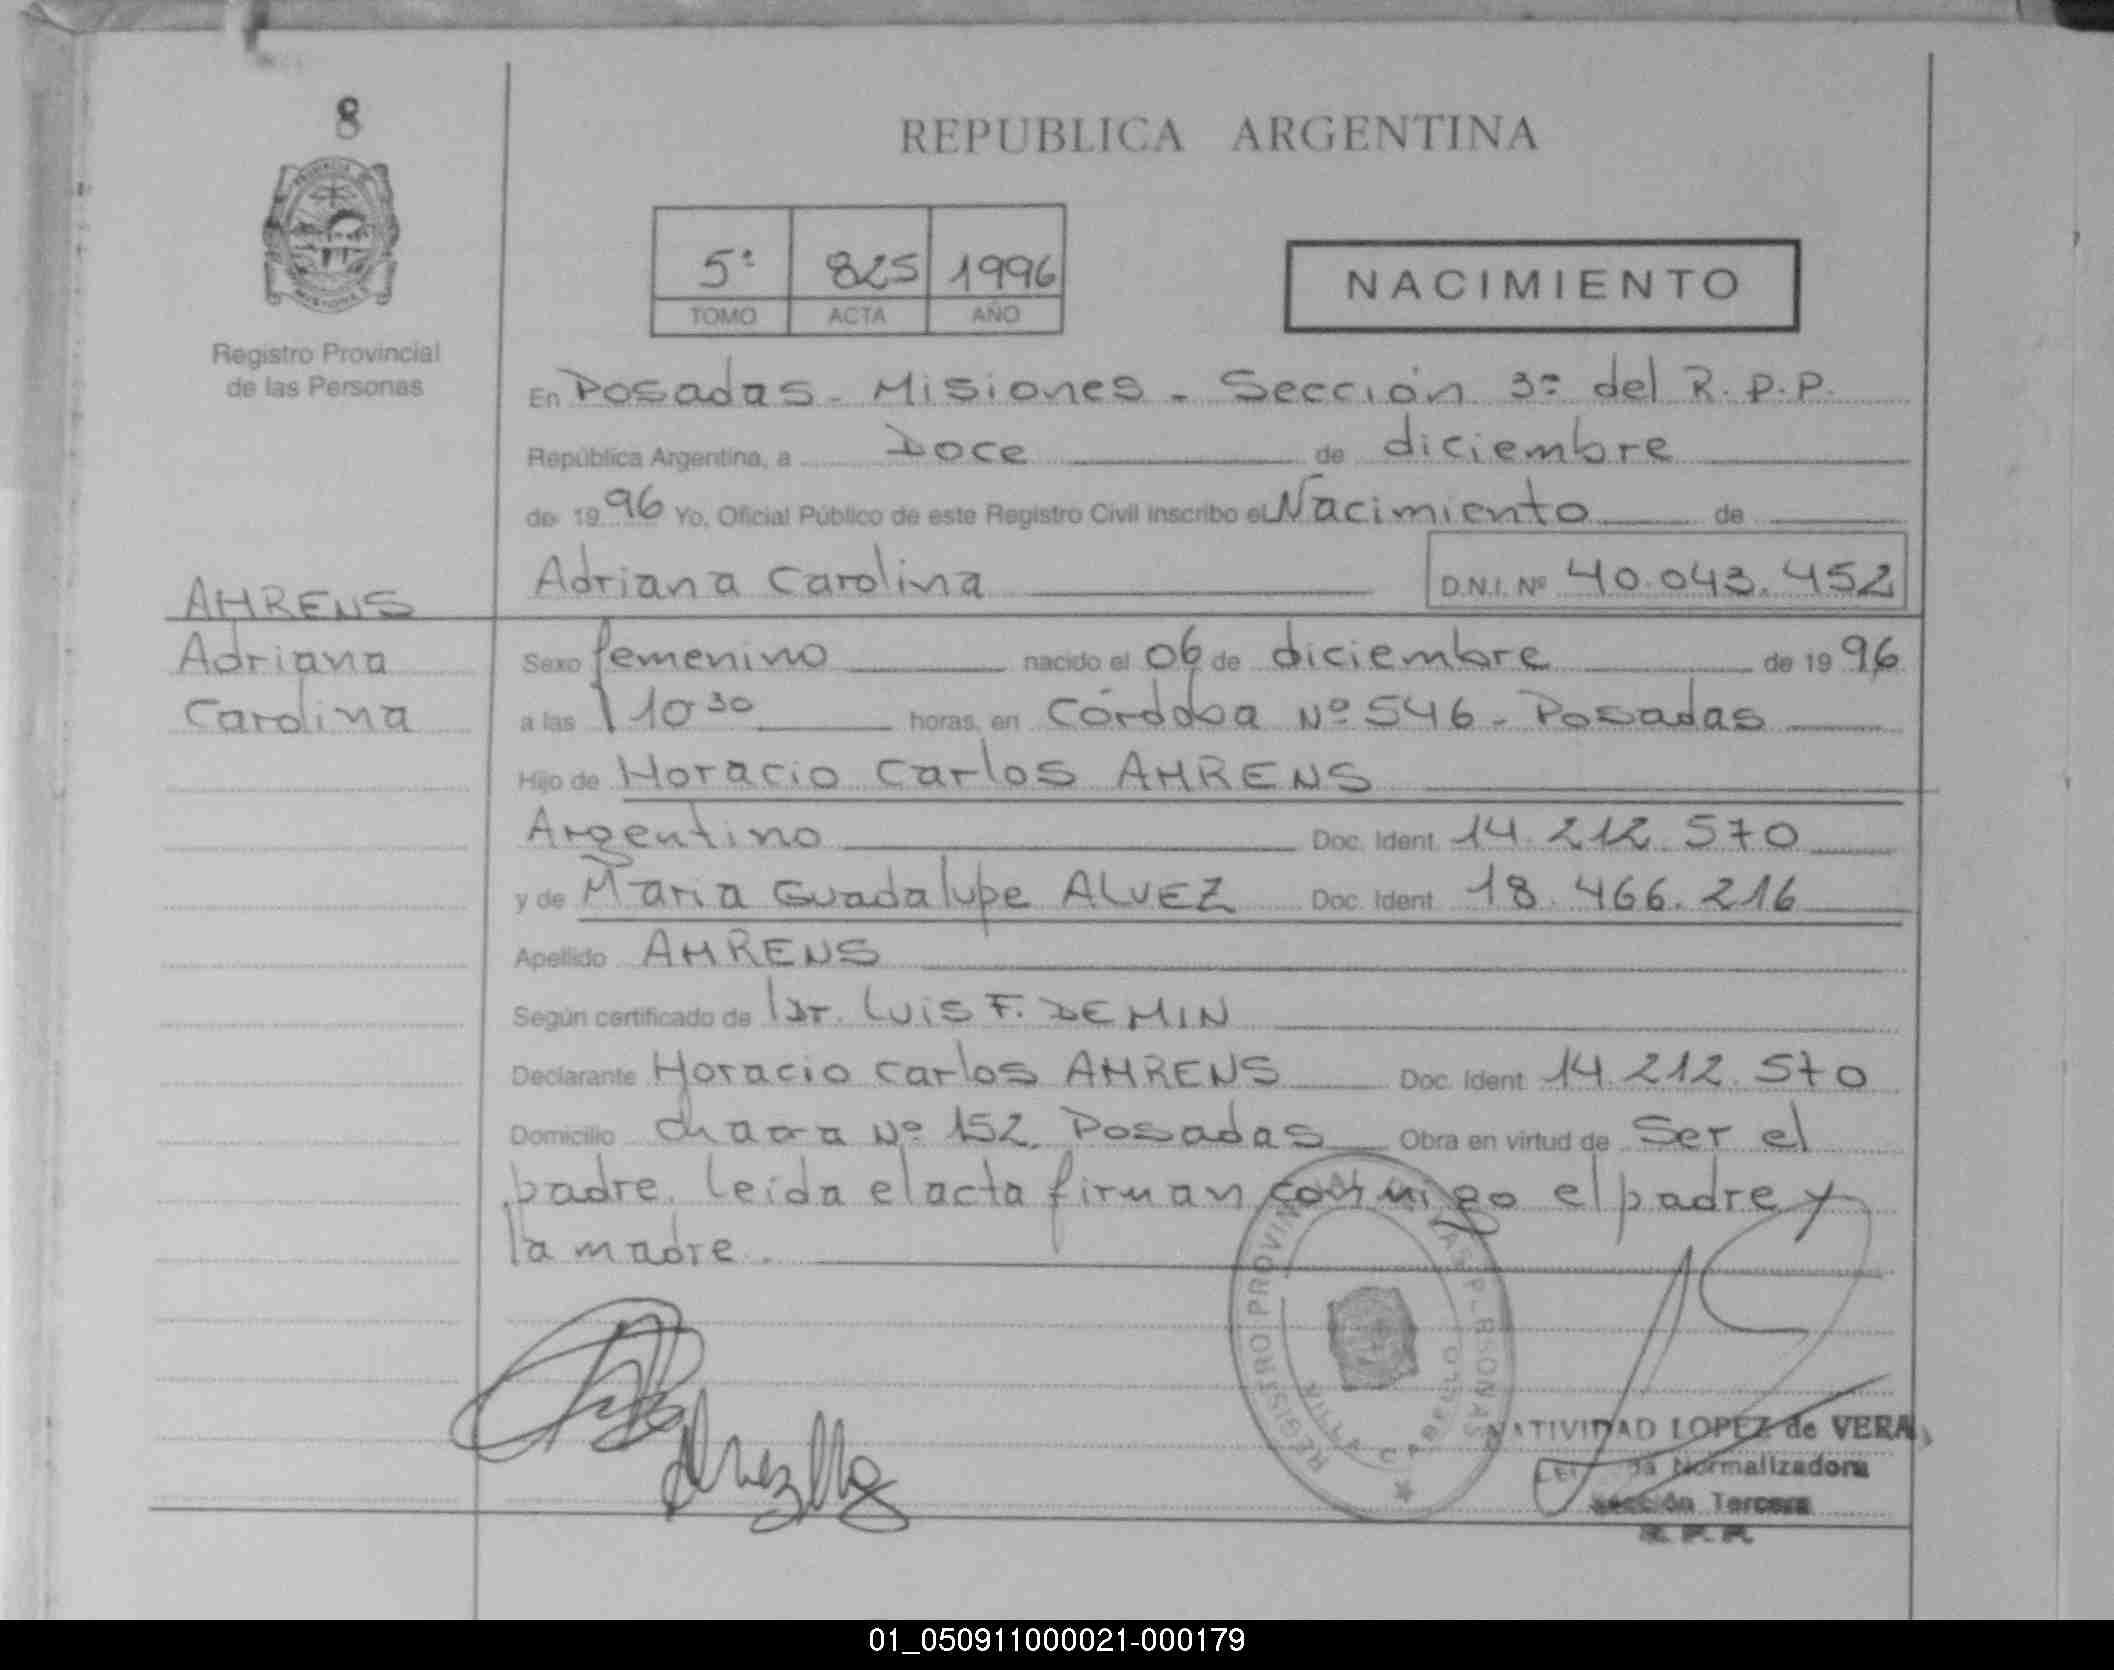 8
REPUBLICA ARGENTINA
5ª 825 1996
TOMO ACTA AÑO
NACIMIENTO
Registro Provincial
de las Personas
En Posadas - Misiones - Sección 3ª del R.P.P.
República Argentina, a Doce de diciembre
de 1996 Yo, Oficial Público de este Registro Civil inscribo el Nacimiento de
Adriana Carolina D.N.I. Nº 40.043.452
AHRENS
Adriana
Carolina
Sexo femenino nacido el 06 de diciembre de 1996
a las 10 30 horas, en Córdoba Nº 546 - Posadas
Hijo de Horacio Carlos AHRENS
Argentino Doc. Ident. 14.212.570
y de Maria Guadalupe ALVEZ Doc. Ident. 18.466.216
Apellido AHRENS
Según certificado de Dr. Luis F. DEMIN
Declarante Horacio Carlos AHRENS Doc. Ident. 14.212.570
Domicilio Nº 152. Posadas Obra en virtud de Ser el
padre. Leida el acta firman conmigo el padre y
la madre.
REGISTRO PROVINCIAL DE LAS PERSONAS
VILLA CABELLO
NATIVIDAD LOPEZ de VERA
Normalizadora
Sección Tercera
R. P. P.
01_050911000021-000179